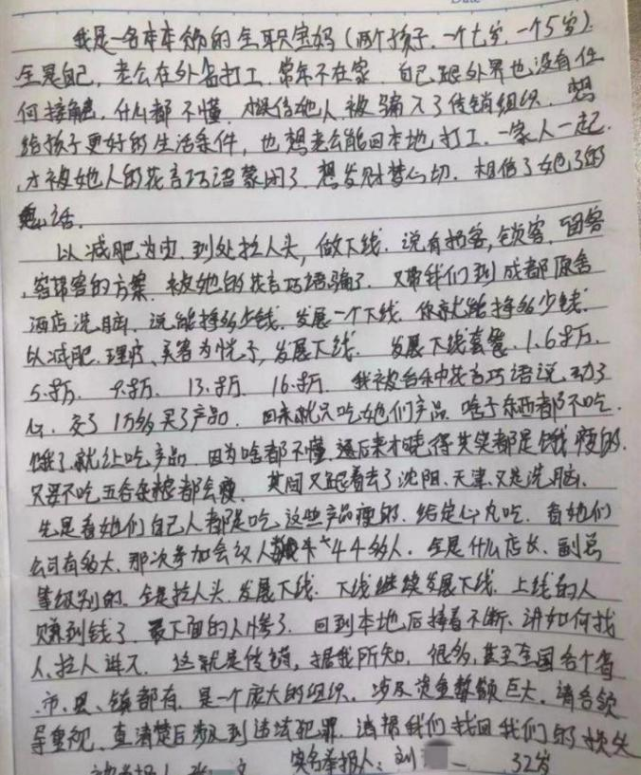 我是一名本本份的全职宝妈（两个孩子、一个七岁、一个5岁）
全是自己，老公在外省打工，常年不在家，自己跟外界也没有任
何接触，什么都不懂，相信她人，被骗入了传销组织，想
给孩子更好的生活条件，也想老公能回本地打工，一家人一起，
才被她人的花言巧语蒙闭了，想发财梦心切，相信了她了的
鬼话。
以减肥为由，到处拉人头，做下线，说有拓客，锁客，留客
，客带客的方案，被她的花言巧语骗了，又带我们到成都原舍
酒店洗脑，说能挣多少钱，发展一个下线，你就能挣多少钱。
以减肥、理疗、美容为幌子，发展下线。发展下线套餐，1.6万，
5.8万， 9.8万， 13.8万 16.8万， 我被台中花言巧语说动了
心，交了1万多买了产品，回来就只吃她们产品，啥子东西都不吃，
饿了就让吃产品，因为啥都不懂，过后来才晓得其实都是饿瘦的，
只要不吃五谷杂粮都会瘦，其间又跟着去了沈阳、天津，又是洗脑，
先是看她们自己人都是吃这些产品瘦的，给定心丸吃，看她们
公司有多大，那次参加会议人4千多人，全是什么店长、副总
等级别的，全是拉人头，发展下线，下线继续发展下线，上线的人
赚到钱了，最下面的人惨了，回到本地后接着不断讲如何找
人、拉人进入，这就是传销，据我所知，很多，甚至全国各个省
、市、县、镇都有，是一个庞大的组织，涉及资金数额巨大，请各领
导重视，查清楚后涉及到违法犯罪，请帮我们找回我们的损失
被举报人：张 实名举报人：刘 32岁